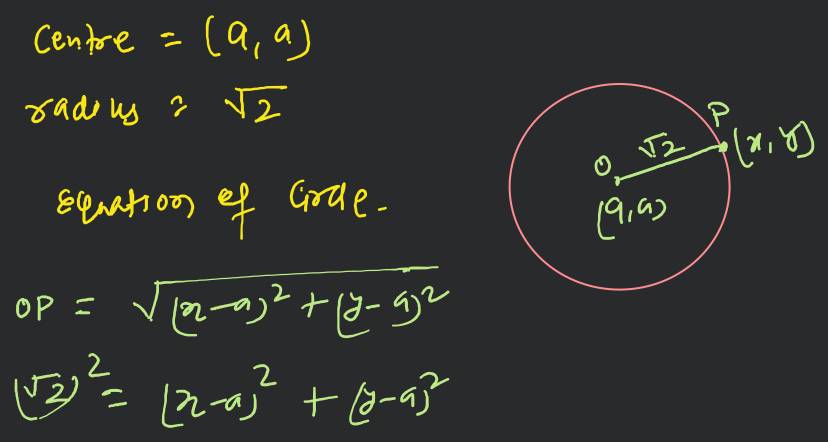 Centre = (a, a)
radius = √2
Equation of Circle.
OP = √(x-a)² + (y-a)²
(√2)² = (x-a)² + (y-a)²
P
√2
(x, y)
O
(a, a)